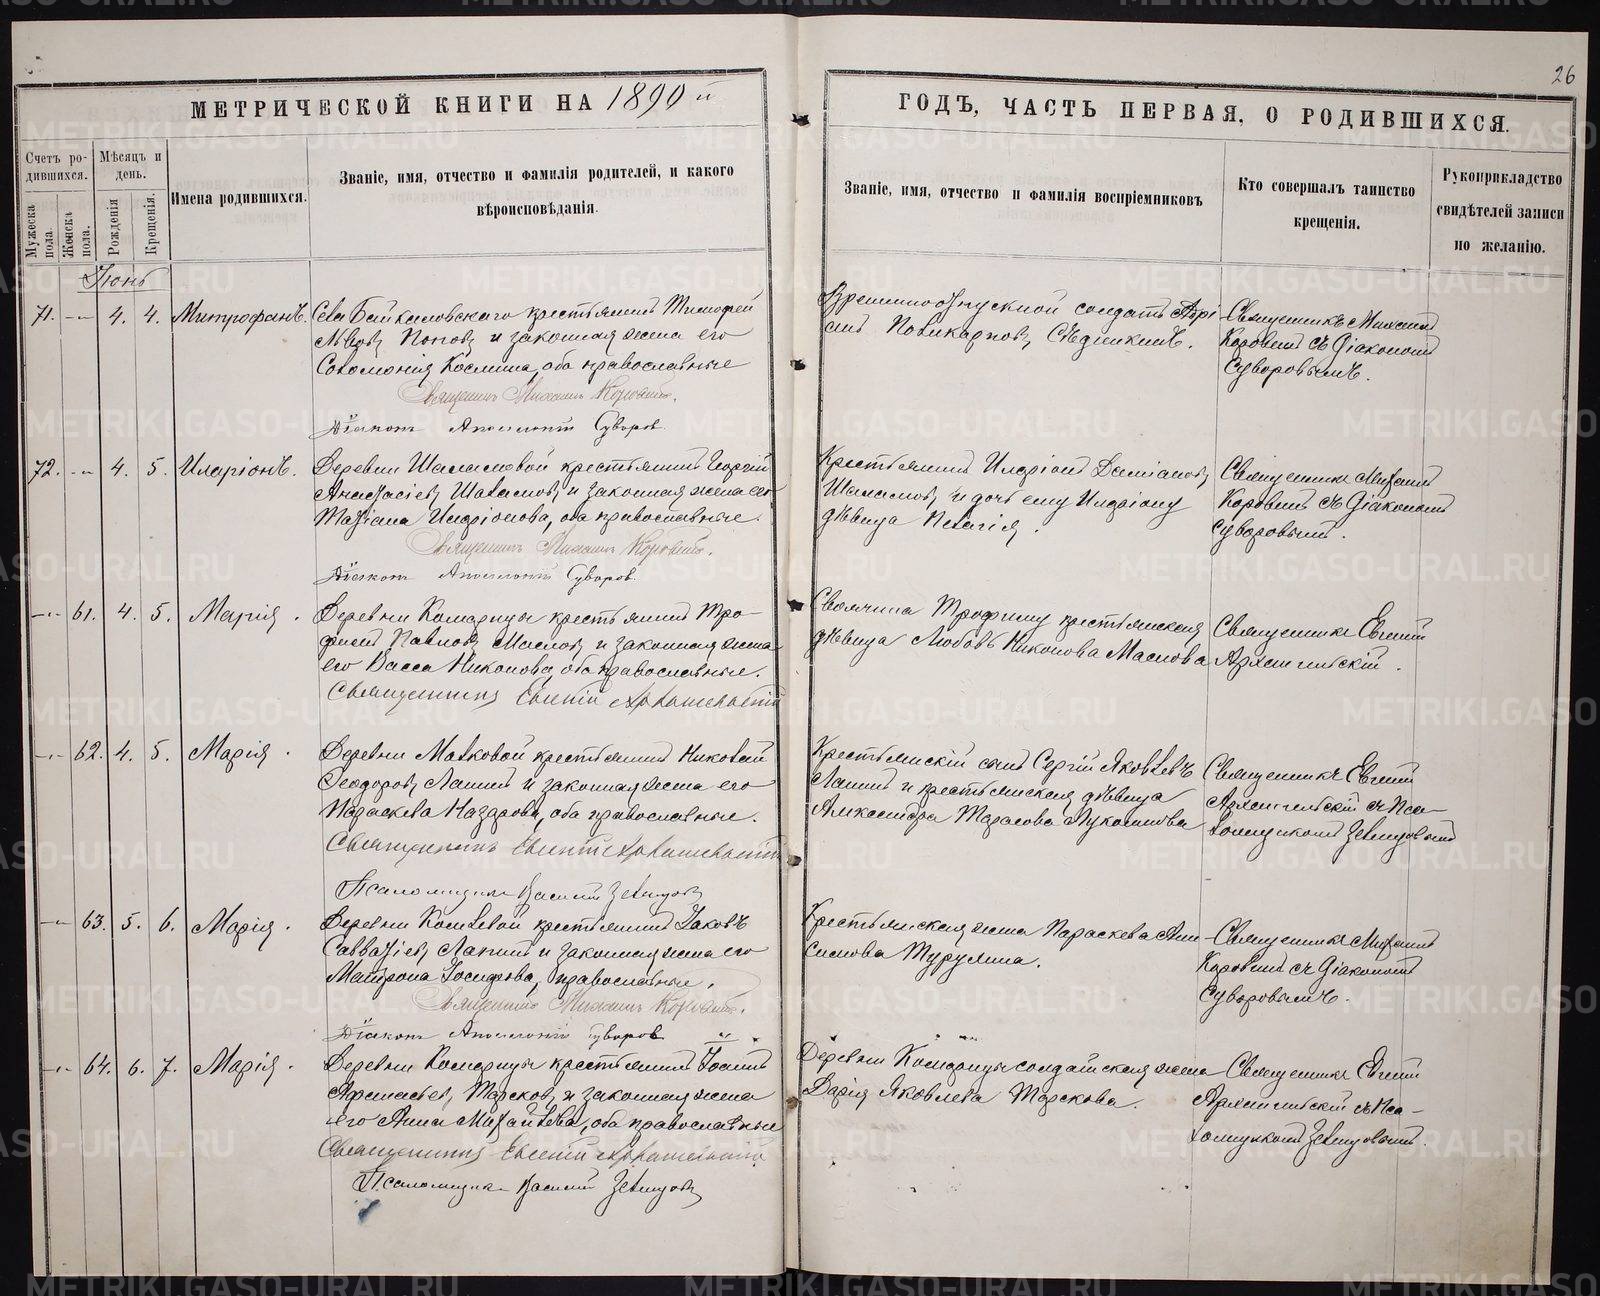 26
МЕТРИЧЕСКОЙ КНИГИ НА 1890 й
ГОДЪ, ЧАСТЬ ПЕРВАЯ, О РОДИВШИХСЯ.
Счетъ ро-
дившихся.
Мужеска
пола.
Женска
пола.
Мѣсяцъ и
день.
Рожденія
Крещенія.
Имена родившихся.
Званіе, имя, отчество и фамилія родителей, и какого
вѣроисповѣданія.
Званіе, имя, отчество и фамилія воспріемниковъ
Кто совершалъ таинство
крещенія.
Рукоприкладство
свидѣтелей записи
по желанію.
Іюнь
71. -"- 4. 4. Митрофанъ.
Села Байкаловскаго крестьянинъ Тимофей
Львовъ Поповъ и законная жена его
Соломонія Космина, оба православные
Священникъ Михаилъ Коровинъ.
Діаконъ Аполлоній Суворов.
Поликарповъ
Священникъ Михаилъ
Коровинъ съ Діакономъ
Суворовымъ.
72. -"- 4. 5. Иларіонъ.
Деревни Шаламовой крестьянинъ Георгій
Анастасіевъ Шаламовъ и законная жена его
Татіана Иларіонова, оба православные.
Священникъ Михаилъ Коровинъ.
Діаконъ Аполлоній Суворов.
Крестьянинъ Иларіонъ Даміановъ
Шаламовъ и дочь ему Иларіону
дѣвица Пелагія.
Священникъ Михаилъ
Коровинъ съ Діакономъ
Суворовымъ.
-"- 61. 4. 5. Марія.
Деревни Комарицы крестьянинъ Тро-
фимъ Павловъ Масловъ и законная жена
его Васса Никонова, оба православные.
Священникъ Евгеній Архангельскій
Своячина Трофиму крестьянская
дѣвица Любовь Никонова Маслова
Священникъ Евгеній
Архангельскій.
-"- 62. 4. 5. Марія.
Деревни Малковой крестьянинъ Николай
Ѳеодоровъ Лапинъ и законная жена его
Параскева Назарова, оба православные.
Священникъ Евгеній Архангельскій
Псаломщикъ Василій
Крестьянскій сынъ Сергій Яковлевъ
Лапинъ и крестьянская дѣвица
Александра Тарасова
Священникъ Евгеній
Архангельскій съ Пса-
ломщикомъ
-"- 63. 5. 6. Марія.
Деревни крестьянинъ Іаковъ
Савватіевъ Лапинъ и законная жена его
Матрона Іосифова, православные.
Священникъ Михаилъ Коровинъ.
Діаконъ Аполлоній Суворов
Крестьянская жена Параскева Ани-
симова Турулина.
Священникъ Михаилъ
Коровинъ съ Діакономъ
Суворовымъ.
-"- 64. 6. 7. Марія.
Деревни Комарицы крестьянинъ Іоаннъ
Афанасьевъ Тарсковъ и законная жена
его Анна Михайлова, оба православные
Священникъ Евгеній Архангельскій
Псаломщикъ Василій
Деревни Комарицы солдатская жена
Дарія Яковлева Тарскова.
Священникъ Евгеній
Архангельскій съ Пса-
ломщикомъ
METRIKI.GASO-URAL.RU